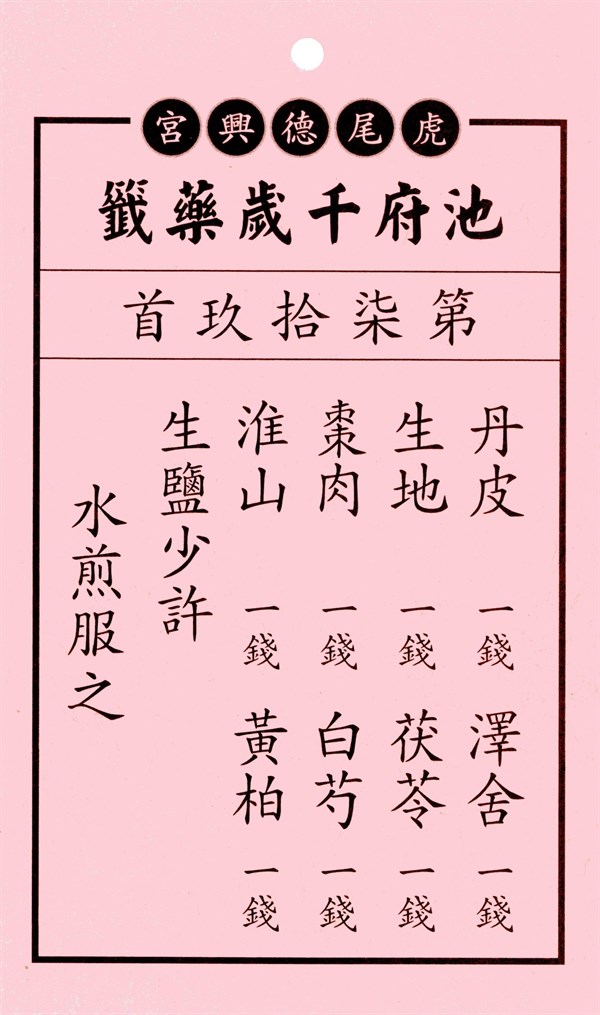 虎尾德興宮
池府千歲藥籤
第柒拾玖首
丹皮 一錢 澤舍 一錢
生地 一錢 茯苓 一錢
棗肉 一錢 白芍 一錢
淮山 一錢 黃柏 一錢
生鹽少許
水煎服之